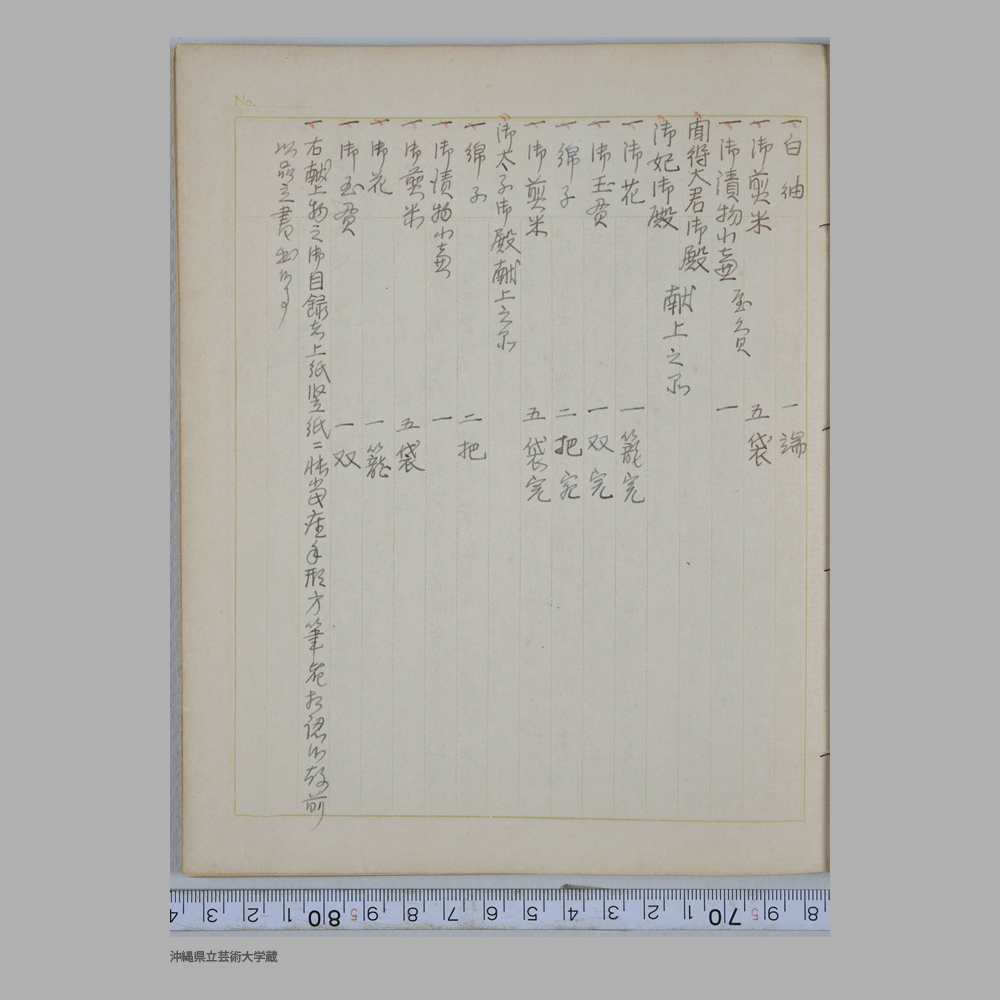 No.
一 白紬 一端
一 御煎米 五袋
一 御漬物小壺 壱負 一
聞得大君御殿
御妃御殿 献上之品
一 御花 一籠完
一 御玉貫 一双完
一 綿子 二把完
一 御煎米 五袋完
御太子御殿献上之品
一 綿子 二把
一 御漬物小壺 一
一 御煎米 五袋
一 御花 一籠
一 御玉貫 一双
右献上物之御目録者上紙竪紙ニ 当座手形方筆 相認 前
書
8 70 5 1 2 3 4 5 6 7 8 5 9 80 1 2 3 4
沖縄県立芸術大学蔵